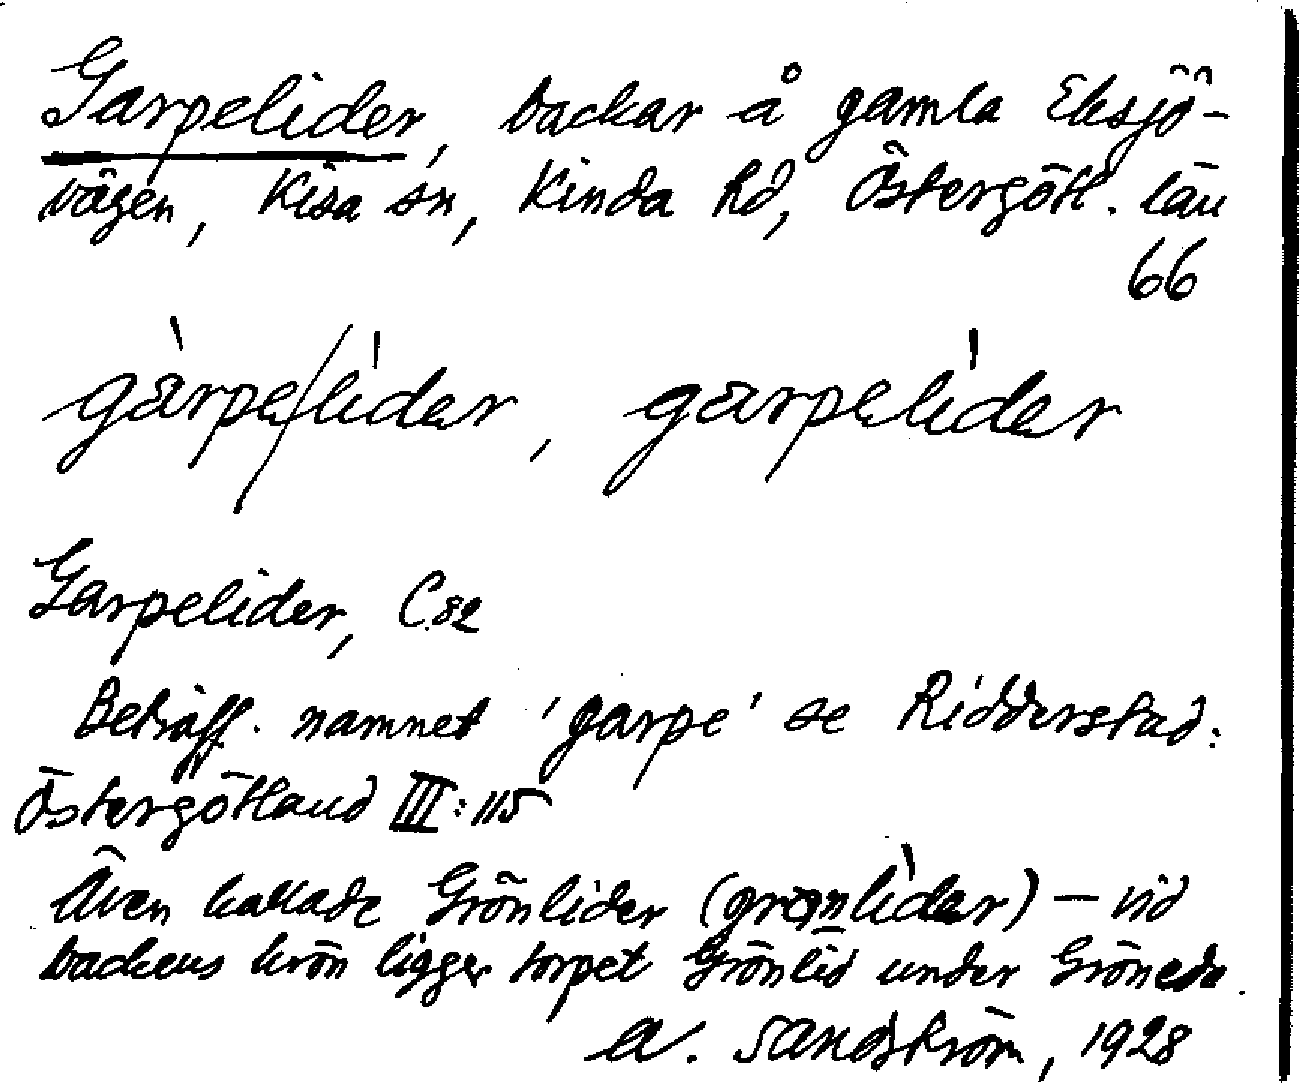 Garpelider, backar å gamla Eksjö-
vägen, Kisa sn, Kinda hd, Östergötl. län
66
gàrpe/líder, garpelíder
Garpelider, C.82
Beträff. namnet 'garpe' se Ridderstad:
Östergötland III:115
Även kallade Grönlider (grønlìder) — vid
backens krön ligger torpet Grönlid under Gröneda.
A. Sandström, 1928